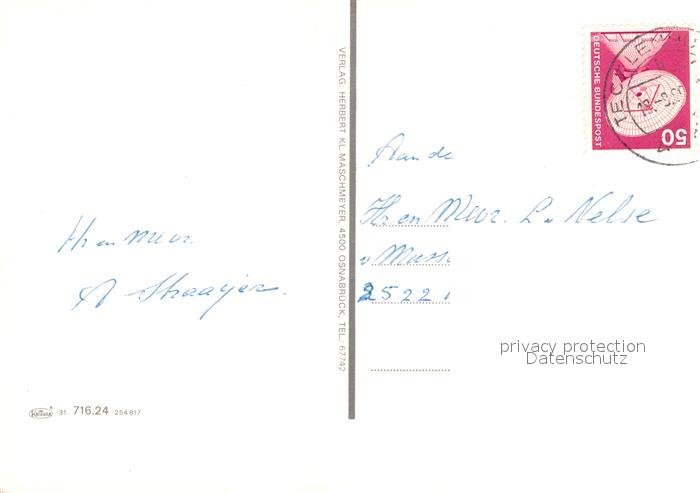 Hr en Mevr.
A Straayer.
Krüger 31. 716.24 254817
VERLAG: HERBERT KL. MASCHMEYER, 4500 OSNABRÜCK, TEL.: 67742
DEUTSCHE BUNDESPOST
50
TECKLEN
Aan de
Hr en Mevr. L. v. Nelse
v Muss
2522
privacy protection
Datenschutz